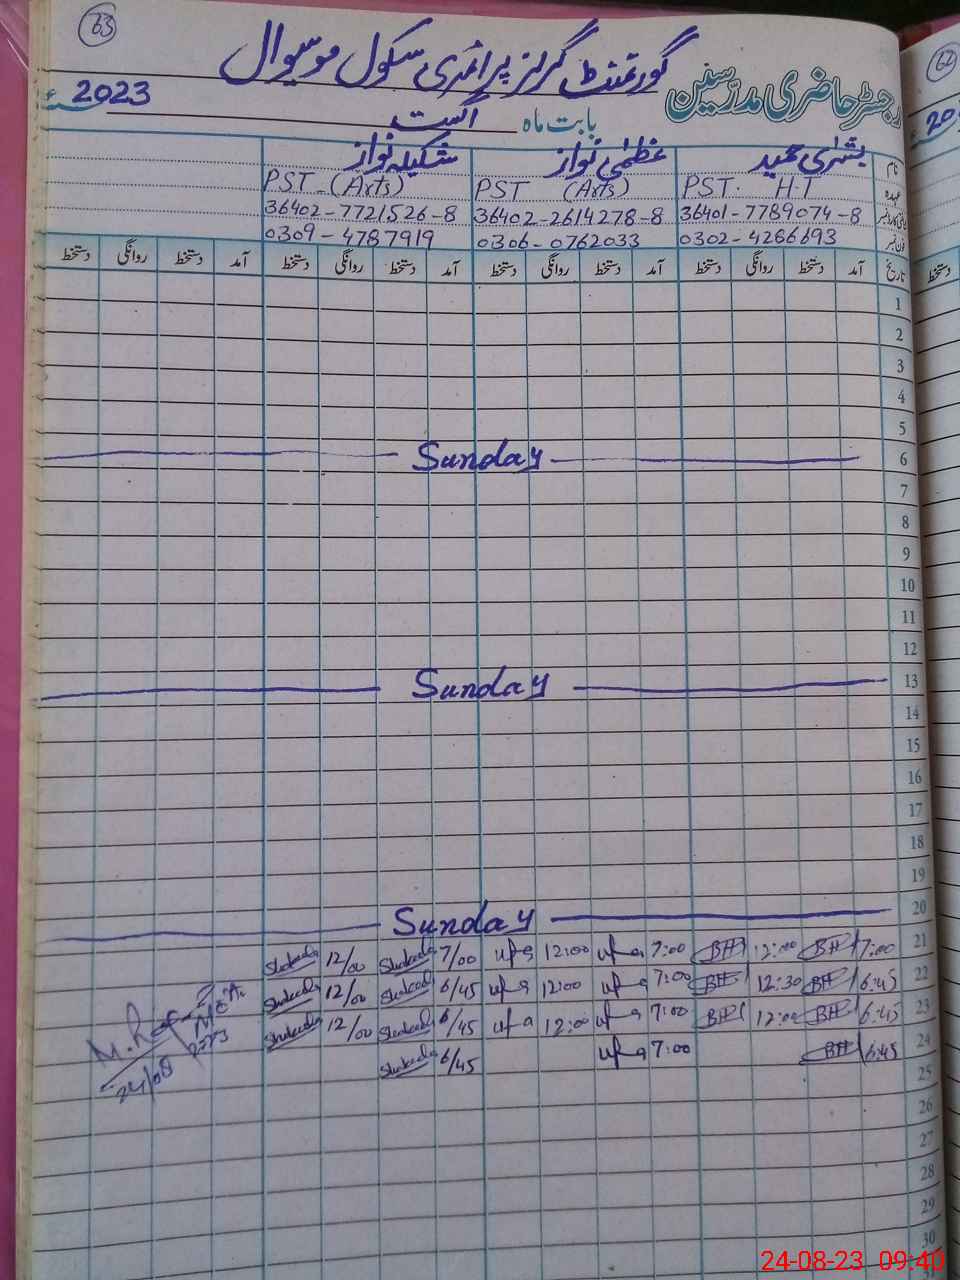 63
گورنمنٹ گرلز پرائمری سکول موسیوال
رجسٹر حاضری مدرسین
بابت ماہ اگست 2023ء
نام بشریٰ حمید عظمٰی نواز شکیلہ نواز
عہدہ PST. H.T PST (Arts) PST - (Arts)
36401-7789074-8 36402-2614278-8 36402-7721526-8
فون نمبر 0302-4266693 0306-0762033 0309-4787919
تاریخ آمد دستخط روانگی دستخط آمد دستخط روانگی دستخط آمد دستخط روانگی دستخط آمد دستخط روانگی دستخط
1
2
3
4
5
6 Sunday
7
8
9
10
11
12
13 Sunday
14
15
16
17
18
19
20 Sunday
21 7:00 BH 12:00 BH 7:00 12:00 7/00 Shakeela 12/00 Shakeela
22 6:45 BH 12:30 BH 7:00 12:00 6/45 Shakeela 12/00 Shakeela
23 6:45 BH 12:00 BH 7:00 12:00 6/45 Shakeela 12/00 Shakeela
24 6:45 BH 7:00 6/45 Shakeela
24/08
25
26
27
28
29
30
62
دستخط
24-08-23 09:40